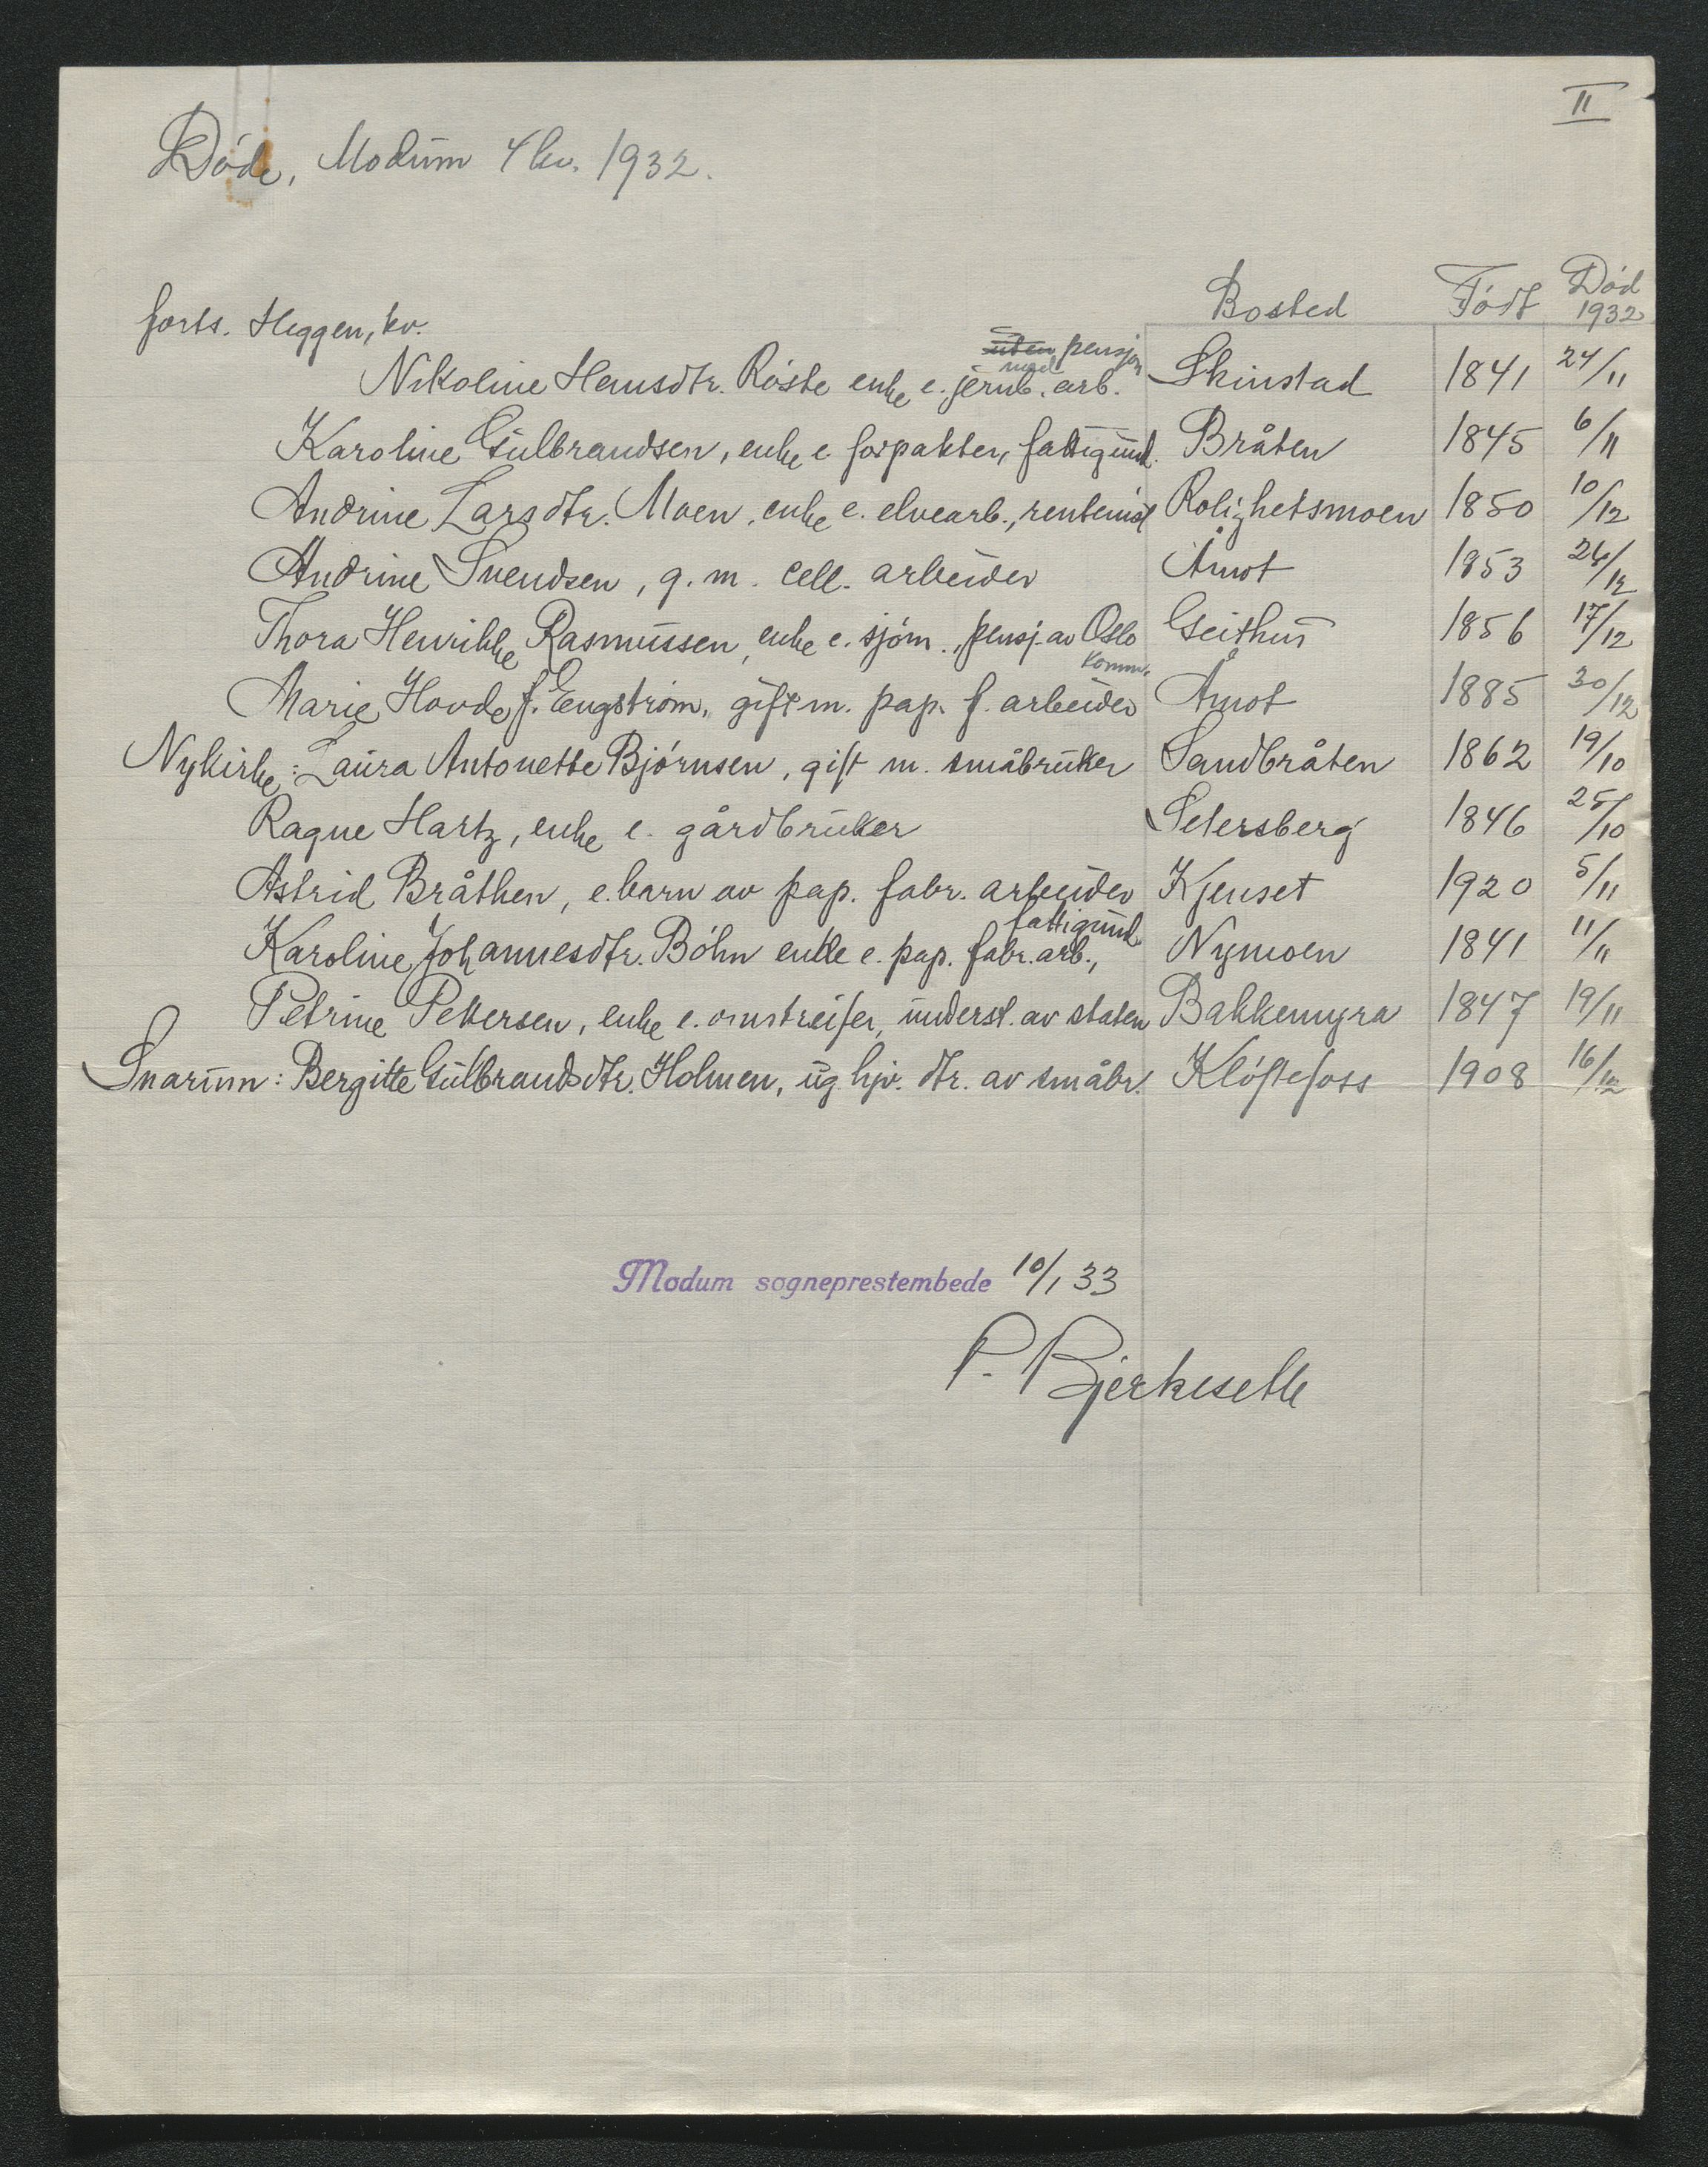 II
Døde, Modum 4 kv. 1932.
Bosted Født Død 1932
forts. Heggen, kv.
uten med pensjon
Nikoline Hansdtr. Røste enke e. jernb. arb. Skinstad 1841 24/11
Karoline Gulbrandsen, enke e. forpakter, fattigund. Bråten 1845 6/11
Andrine Larsdtr. Moen, enke e. elvearb., rentenist Rolighetsmoen 1850 10/12
Andrine Svendsen, g. m. cell. arbeider Åmot 1853 /12
Thora Henrikke Rasmussen, enke e. sjøm., pensj. av Oslo komm. Geithus 1856 17/12
Marie Hovde f. Engstrøm, gift m. pap. f. arbeider Åmot 1885 30/12
Nykirke: Laura Antonette Bjørnsen, gift m. småbruker Sandbråten 1862 19/10
Ragne Hartz, enke e. gårdbruker Setersberg 1846 25/10
Astrid Bråthen, e. barn av pap. fabr. arbeider Kjenset 1920 5/11
Karoline Johannesdtr. Böhn enke e. pap. fabr. arb., fattigund. Nymoen 1841 11/11
Petrine Pettersen, enke e. omstreifer, underst. av staten Bakkemyra 1847 19/11
Snarum: Bergitte Gulbrandsdtr. Holmen, ug. hjv. dtr. av småbr. Kløftefoss 1908 16/12
Modum sogneprestembede 10/1 33
P. Bjerkeseth